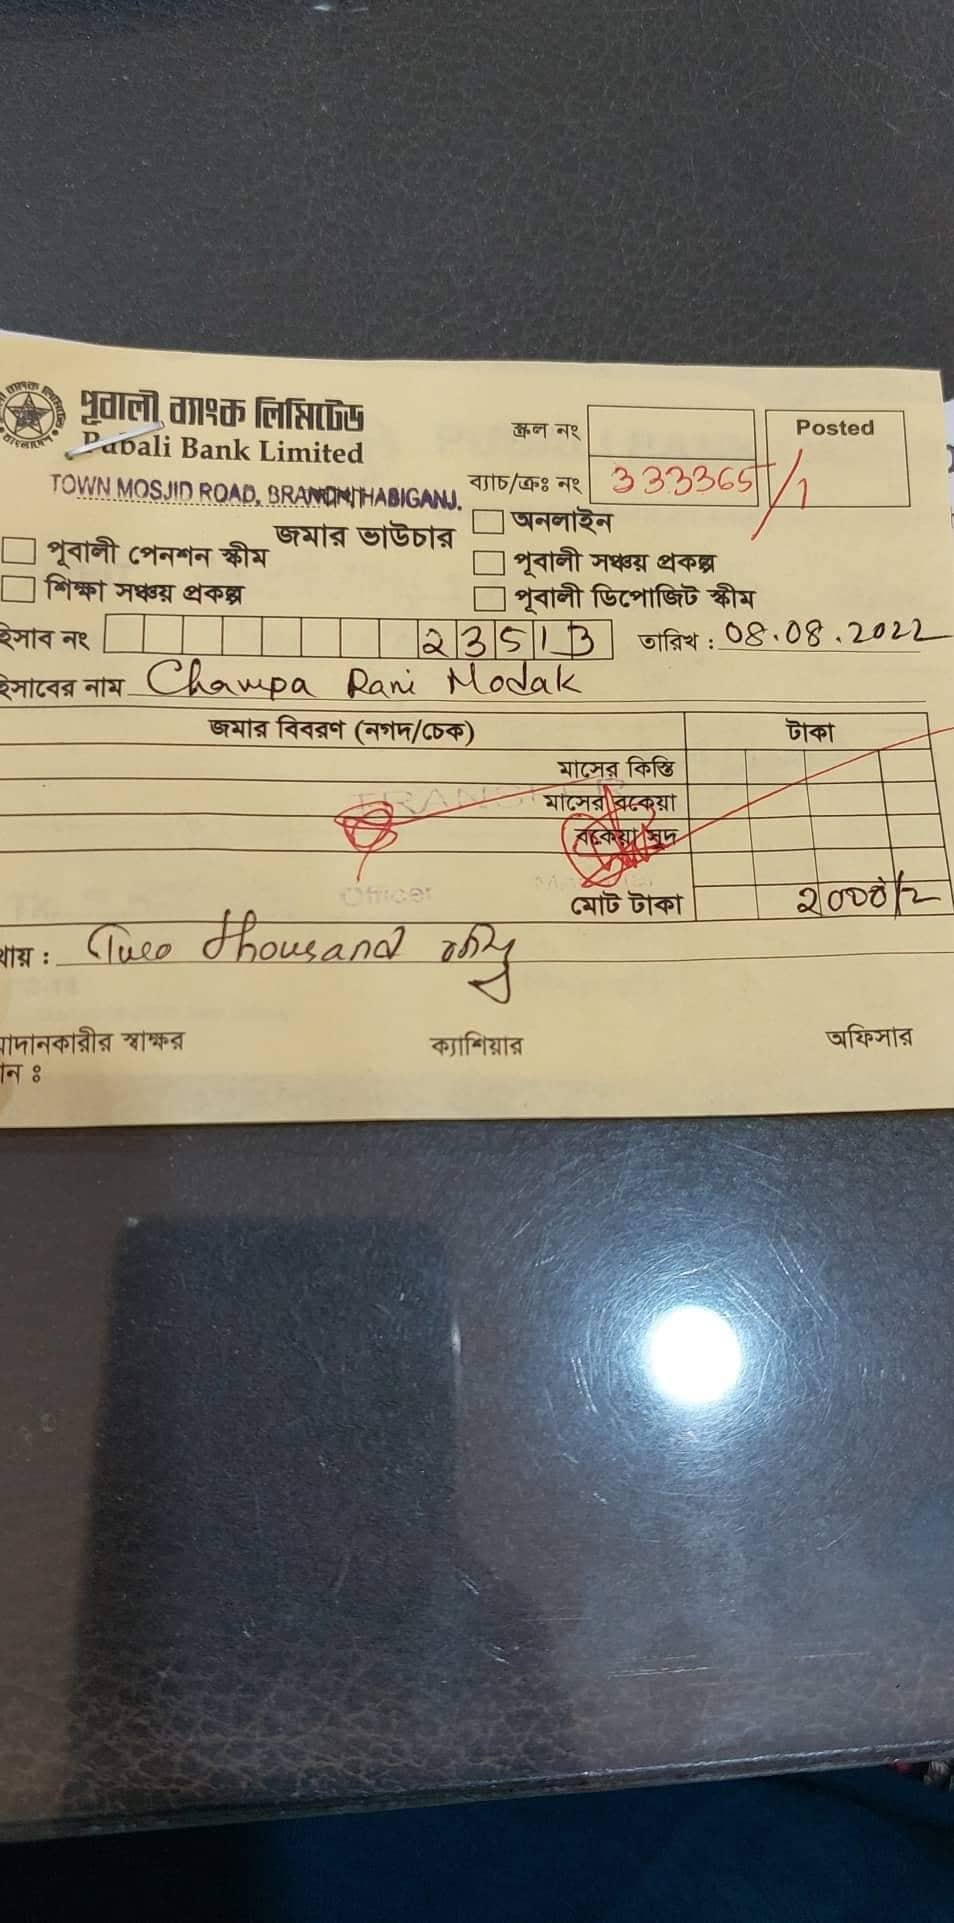 পূবালী ব্যাংক লিমিটেড
Pubali Bank Limited
TOWN MOSJID ROAD, BRANCH, HABIGANJ.
স্ক্রল নং
ব্যাচ/ক্রঃ নং 333365/1
Posted
জমার ভাউচার
অনলাইন
পূবালী পেনশন স্কীম
পূবালী সঞ্চয় প্রকল্প
শিক্ষা সঞ্চয় প্রকল্প
পূবালী ডিপোজিট স্কীম
হিসাব নং 23513 তারিখ : 08.08.2022
হিসাবের নাম Champa Rani Modak
জমার বিবরণ (নগদ/চেক) টাকা
মাসের কিস্তি
TRANSFER
মাসের বকেয়া
বকেয়া সুদ
Officer
মোট টাকা 2000/=
থায় : Two thousand only
ক্যাশিয়ার
অফিসার